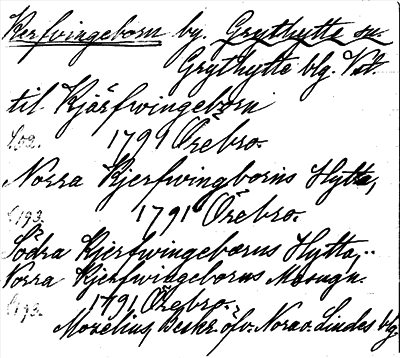 Kerfvingeborn by. Grythytte sn.
Grythytte blg. Vstl.
til Kjärfwingeborn
S.02. 1791 Örebro.
Norra Kjerfwingborns Hytta,
S.193. 1791 Örebro.
Södra Kjerfwingeborns Hytta,
Norra Kjerfwingeborns Masugn.
S.193. 1791 Örebro.
Mozelius, Beskr. öfv. Nora o. Lindes blg.